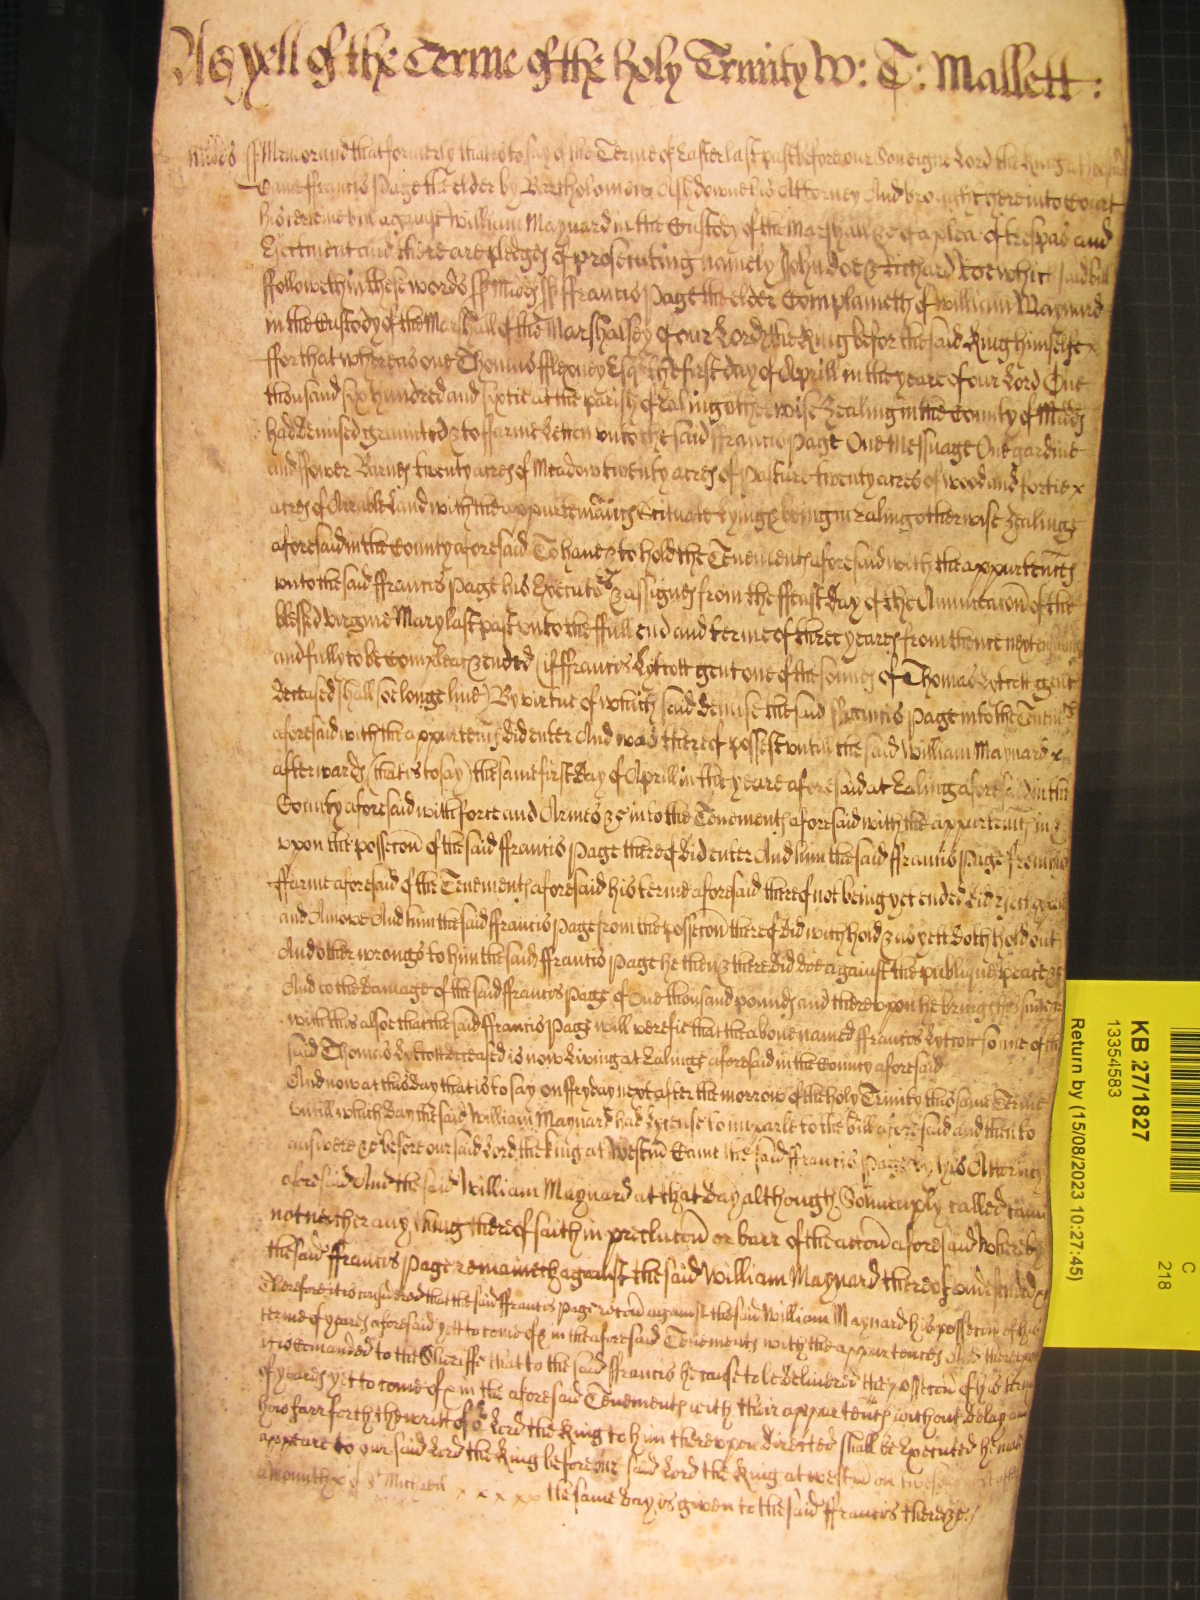 As yett of the Terme of the holy Trinity W: T: Mallett:
Midds ss Memorand that formerly that is to say of the Terme of Easter last past before our Soveigne Lord the King at
Came ffrancis Page the elder by Bartholomew Ashdowne his Attorney And brought there into Court
his certeine bill against William Maynard in the Custody of the Marshall &c of a plea of trespas and
Ejectment and there are pledges of prosecuting namely John doe & Richard Roe which said bill
ffolloweth in these words ss Midds ss ffrancis Page the elder Complaineth of William Maynard
in the Custody of the Marshall of the Marshalsey of our Lord the King before the said King himselfe x
ffor that whereas one Thomas fflexney Esqr the first day of Aprill in the yeare of our Lord One
thousand six hundred and sixtie at the parish of Ealing otherwise Zealing in the County of Midds
had demised graunted & to ffarme letten unto the said ffrancis Page One Messuage One gardine
and ffower Barnes twenty acres of Meadow twenty acres of Pasture twenty acres of wood and fortie x
acres of Arrable Land with the appurtenances Scituate lying & being in Ealing otherwise Zealing
aforesaid in the County aforesaid To have & to hold the Tenements aforesaid with the appurtences
unto the said ffrancis Page his Executors & assignes from the ffeast day of the Annuncacon of the
blessed virgine Mary last past unto the ffull end and terme of three yeares from thence next
and fully to be Compleat & ended (if ffrancis Lyttcott gent one of the sonnes of Thomas Lyttcott gent
deceased shall soe longe live) By virtue of which said demise the said ffrancis Page into the Tentmts
aforesaid with the appurtenances did enter And was thereof possest untill the said William Maynard x
afterwards (that is to say) the same first day of Aprill in the yeare aforesaid at Ealing aforesaid in the
County aforesaid with force and Armes &c into the Tenements aforesaid with the appurtents in &
upon the possecon of the said ffrancis Page thereof did enter And him the said ffrancis Page from his
ffarme aforesaid of the Tenements aforesaid his terme aforesaid thereof not being yet ended did Eject expell
and Amove And him the said ffrancis Page from the possecon thereof did withhold & as yett doth hold out
And other wrongs to him the said ffrancis Page he then & there did doe against the publique peace &c
And to the damage of the said ffrancis Page of One thousand pounds and thereupon he brings his suite &c
with this alsoe that the said ffrancis Page will verefie that the above named ffrancis Lyttcott sonne of the
said Thomas Lyttcott deceased is now Living at Ealinge aforesaid in the County aforesaid
And now at this day that is to say on ffryday next after the morrow of the holy Trinity this same Terme
untill which day the said William Maynard had lycense to imparle to the bill aforesaid and then to
answere &c before our said Lord the King at Westm Came the said ffrancis Page by his Attorney
aforesaid And the said William Maynard at that day although Solemnply called came
not neither any thing thereof saith in preclucon or barr of the accon aforesaid Whereby
the said ffrancis Page remaineth against the said William Maynard thereof undefended x
Therefore it is considered that the said ffrancis Page recou against the said William Maynard his possecon of his
terme of yeares aforesaid yett to come of & in the aforesaid Tenements with the appurtences And thereupon
it is Comanded to the Sheriffe that to the said ffrancis he cause to be delivered the possecon of his terme
of yeares yet to come of & in the aforesaid Tenements with their appurtents without delay and
how farr forth the writt of or Lord the King to him thereupon directed shall be Executed he make
appeare to our said Lord the King before our said Lord the King at westm on
a month of St Michaell x x x x x the same day is given to the said ffrancis there &c./
KB 27/1827
13354583
Return by (15/08/2023 10:27:45)
C
218